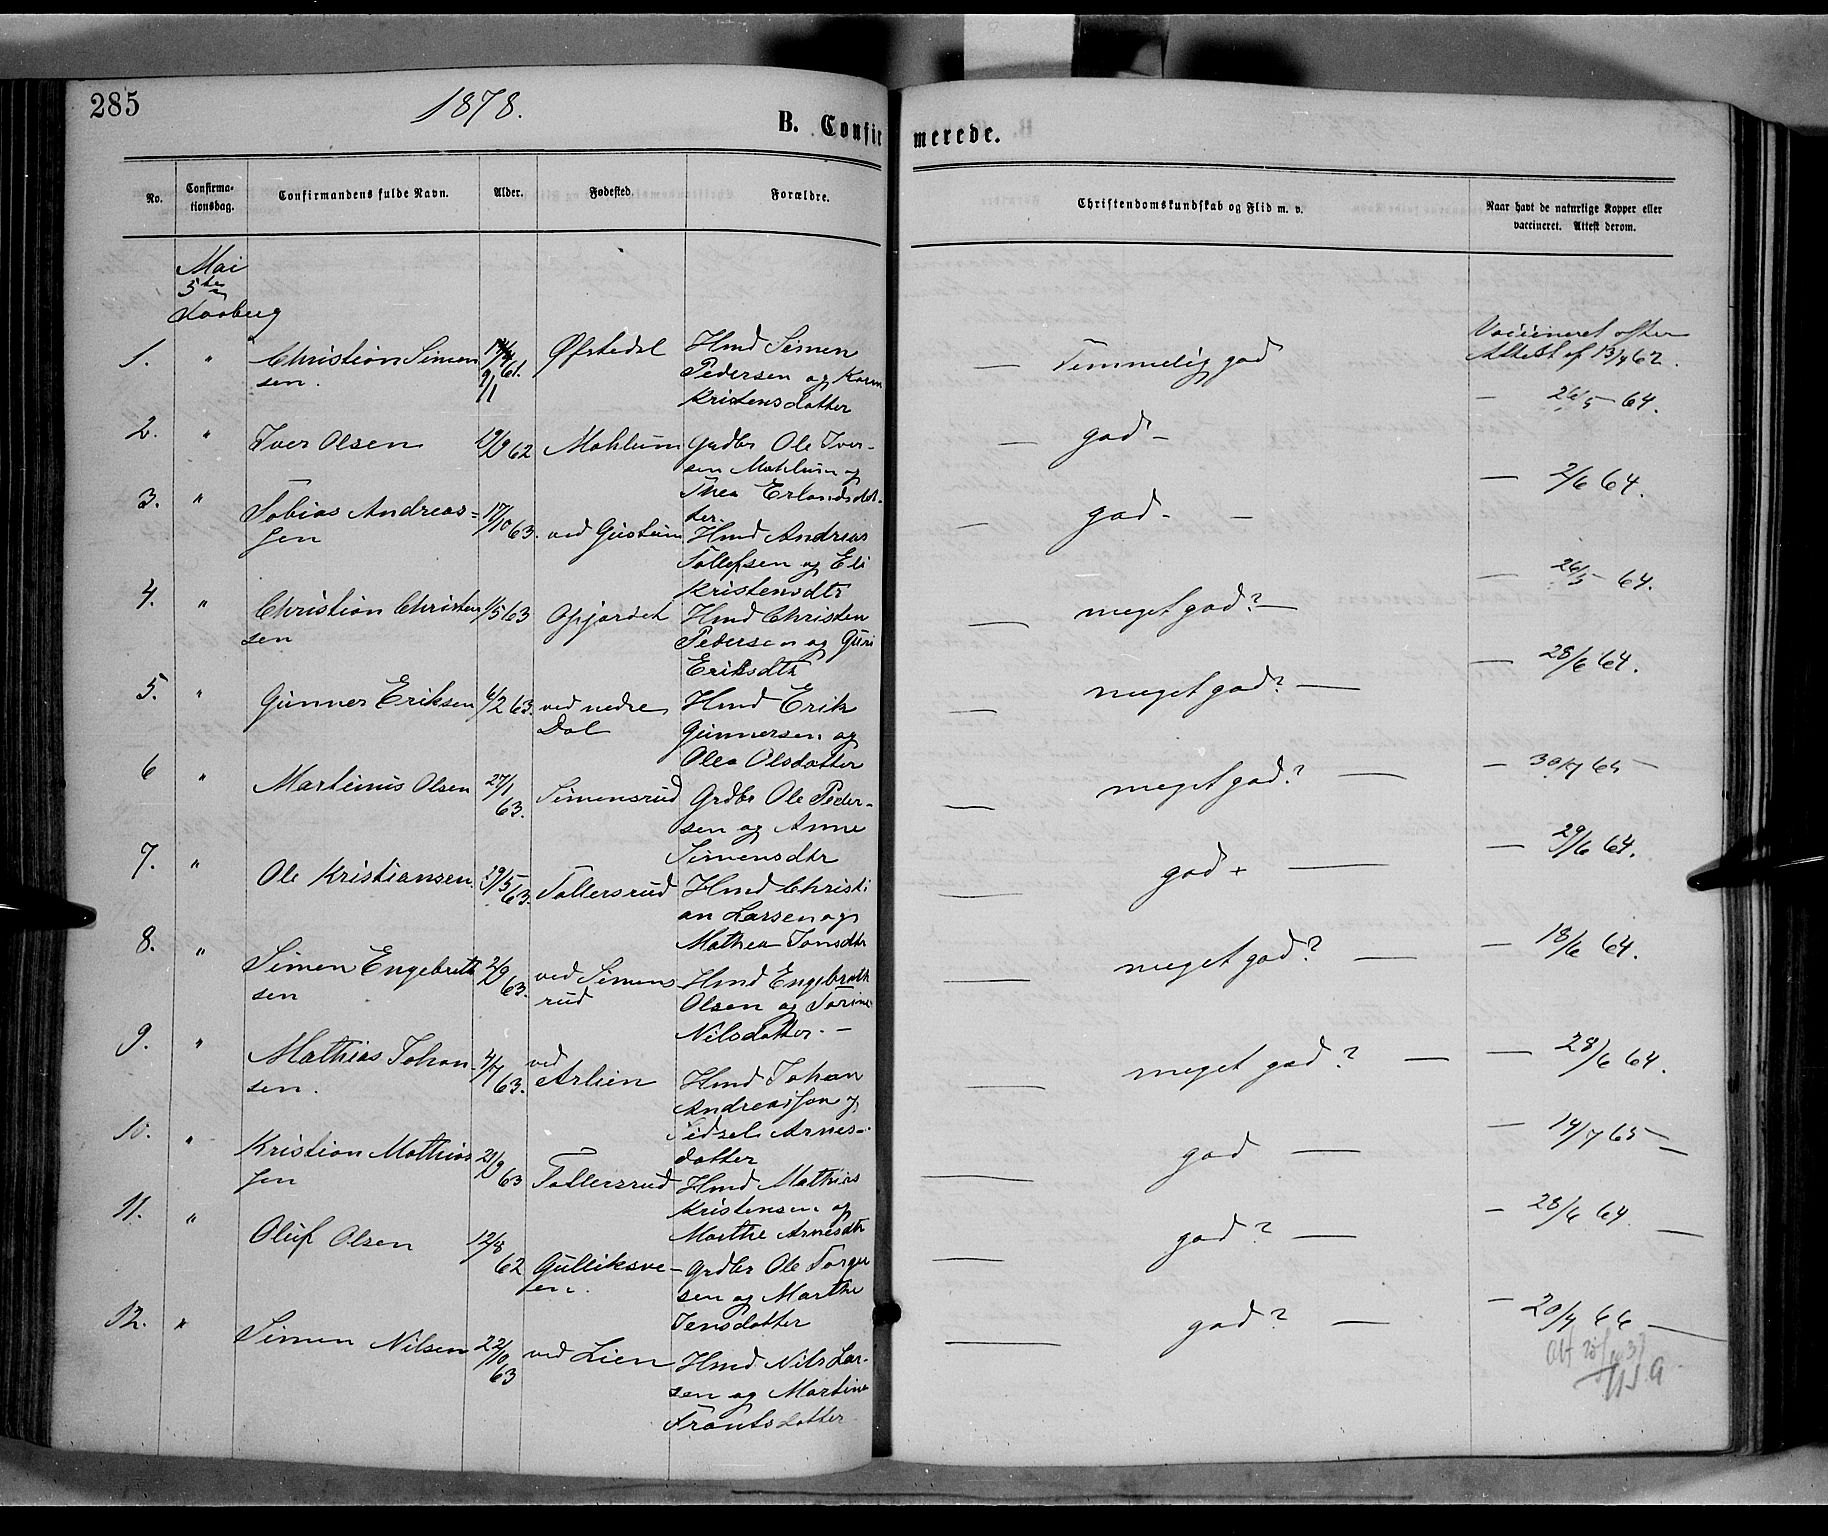 285
1878.
B. Confirmerede.
No.
Confirmationsdag.
Confirmandens fulde Navn.
Alder.
Fødested.
Forældre.
Christendomskundskab og Flid m. v.
Naar havt de naturlige Kopper eller
vaccineret. Attest derom.
Mai
5te
1. " Christian Simensen. 61. Hmd Simen Pedersen og Karen Kristensdatter — Temmelig god Vaccineret efter Attest af 13/7 62.
2. " Iver Olsen 62 Mohlum Grdbr Ole Iversen Mohlum og Thea Erlandsdatter. — god — — 26/5 64.
3. " Tobias Andreassen 17/10 63. ved Gustum Hmd Andreas Tollefsen og Eli Kristensdtr — god — — 2/6 64.
4. " Christian Christensen 1/5 63 Opjordet Hmd Christen Pedersen og Guri Eriksdtr — meget god? — — 26/5 64.
5. " Gunner Eriksen 6/2 63. ved nedre Dal Hmd Erik Gunnersen og Olea Olsdatter — meget god? — — 28/6 64.
6 " Martinus Olsen 27/1 63. Simensrud Grdbr Ole Pedersen og Anne Simensdtr — meget god? — — 30/7 65 —
7. " Ole Kristiansen. 63. Tollersrud Hmd Christian Larsen og Mathea Jonsdtr — god + — — 29/6 64.
8. " Simen Engebrethsen 2/9 63. ved Simensrud Hmd Engebreth Olsen og Torine Nilsdatter. — — meget god? — — 18/6 64.
9. " Mathias Johansen. 4/7 63. ved Hmd Johan Andreassen og Sidsel Arnesdatter — meget god? — — 28/6 64.
10. " Kristian Mathiassen 21/9 63 Tollersrud Hmd Mathias Kristensen og Marthe Arnesdtr — god — — 14/7 65 —
11. " Oluf Olsen 12/8 62 Gulliksveen. Grdbr Ole Torgersen og Marthe Jensdatter — god? — — 28/6 64. —
12. " Simen Nilsen 22/10 63 ved Lien Hmd Nils Larsen og Martine Frantsdatter — god? — — 20/7 66 —